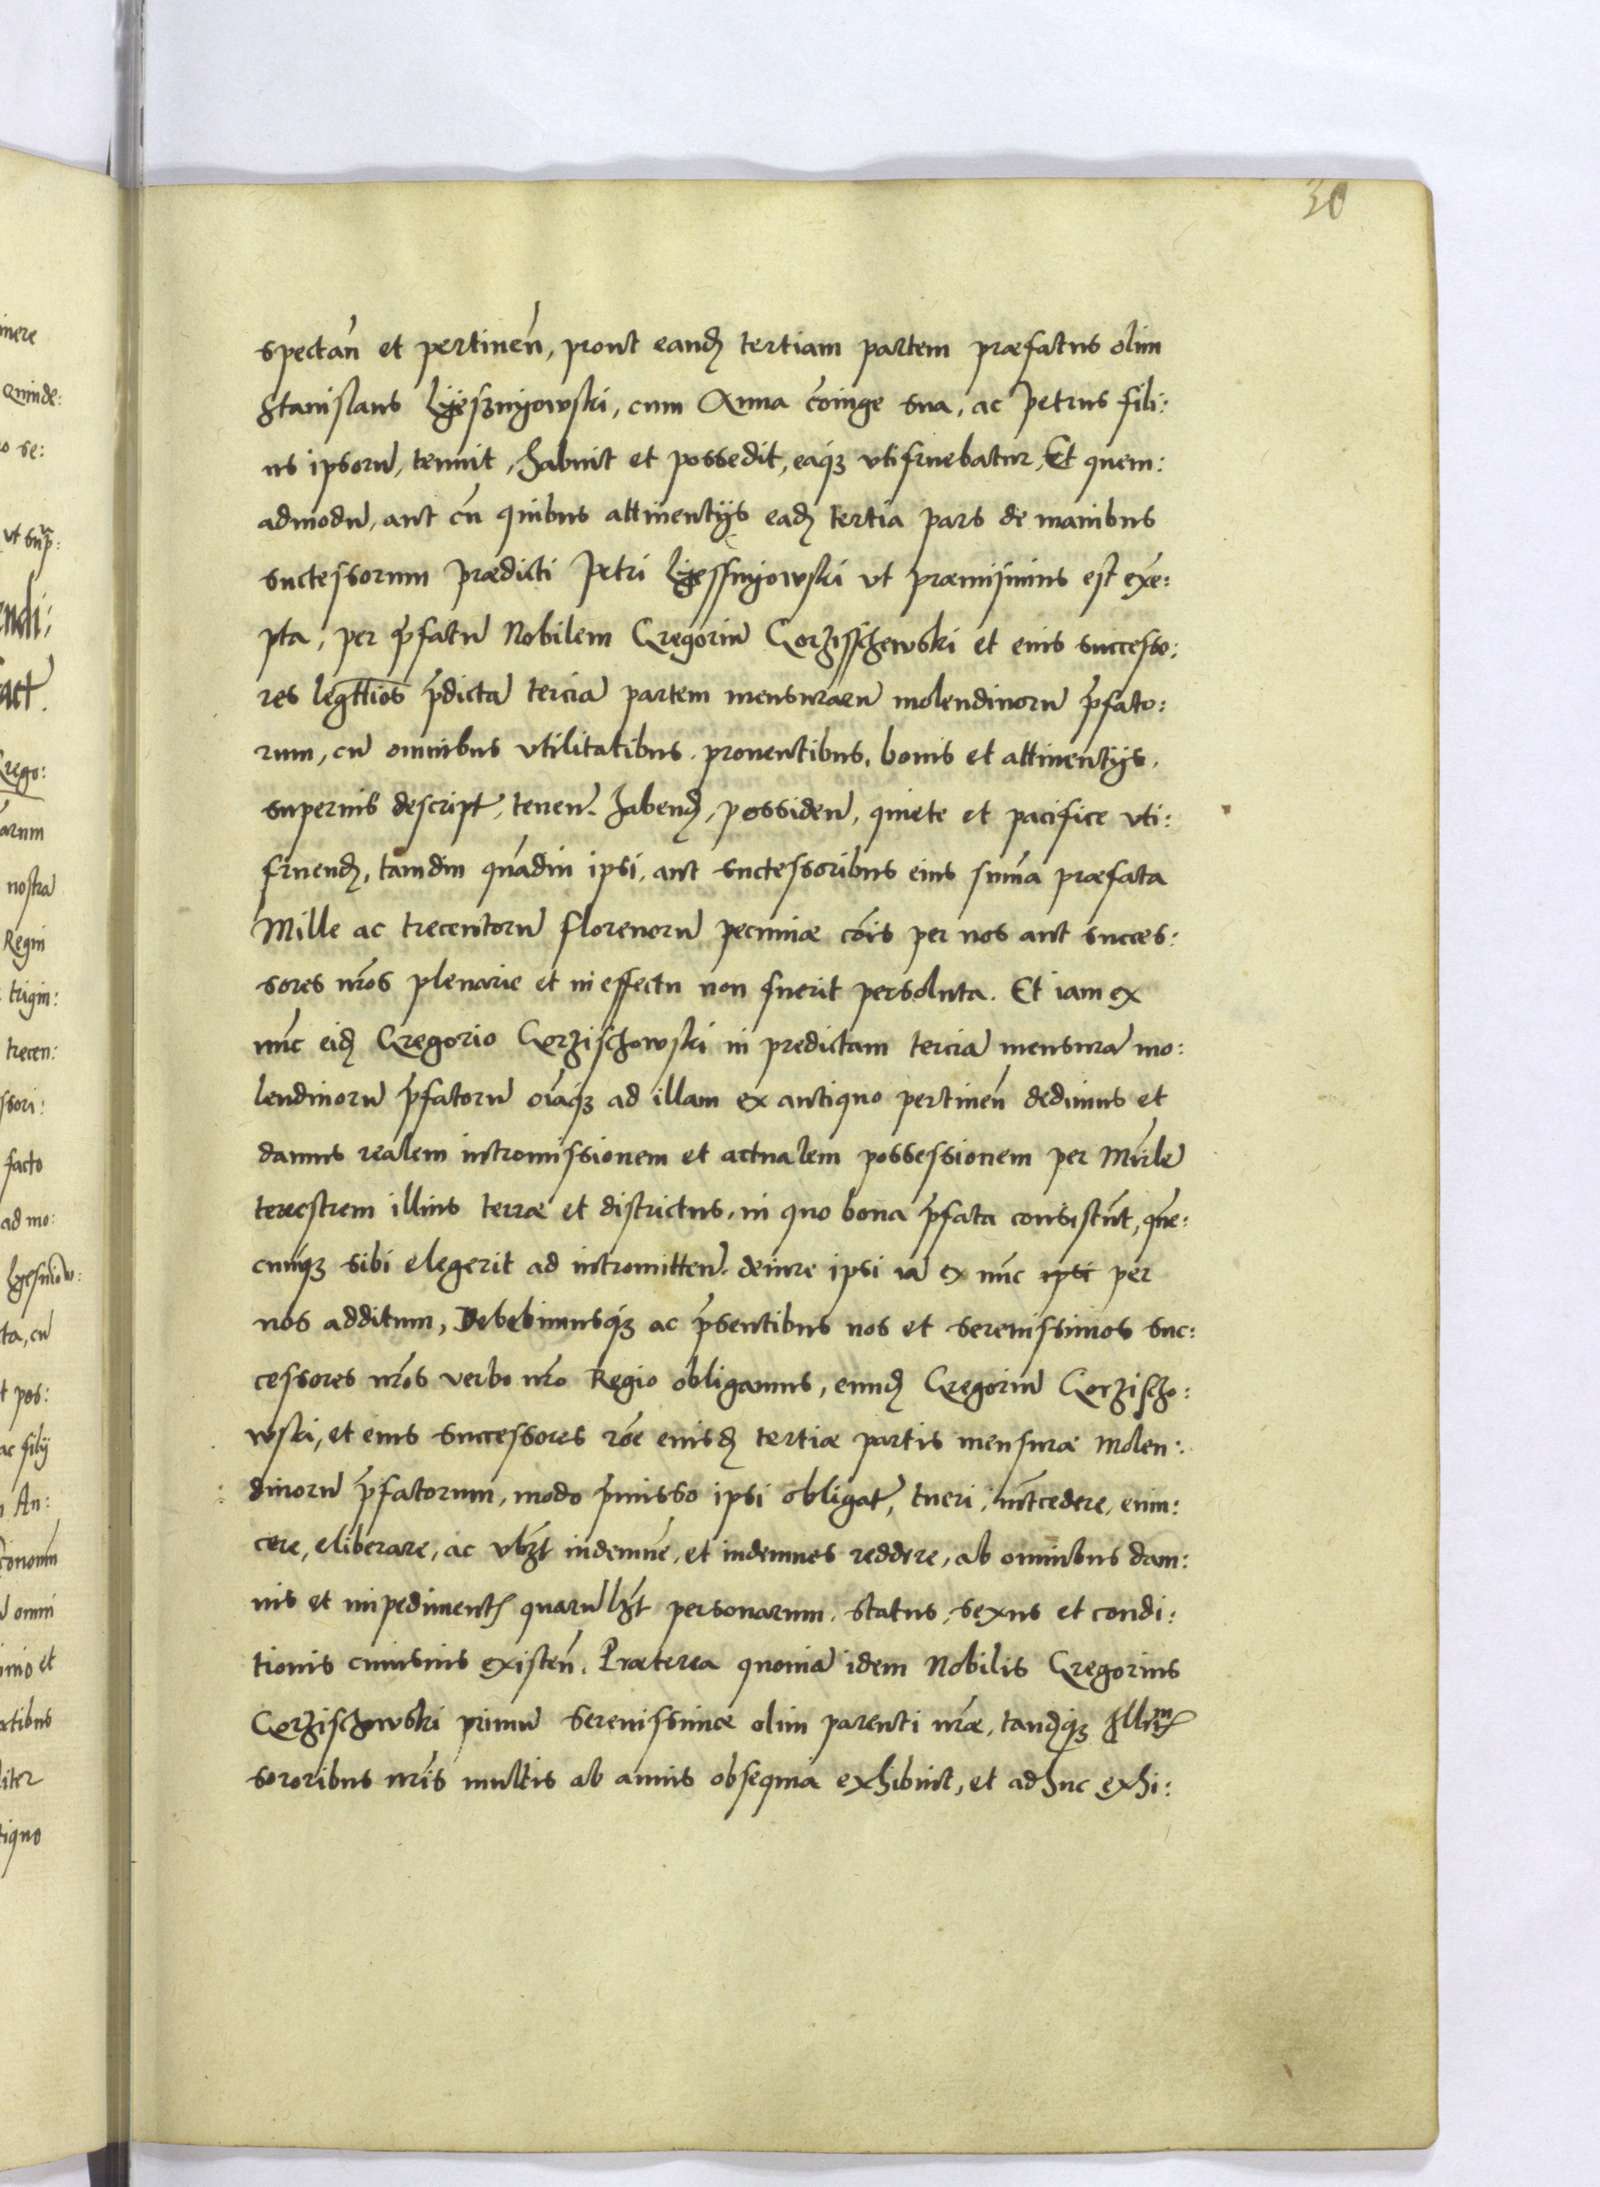 30
spectan̄ et pertinen̄, prout eandȝ tertiam partem præfatus olim
Stanislaus Lyeszniowski, cum Anna cōiuge sua, ac Petrus fili:
us ipsorū, tenuit, habuit et possedit, eaqȝ vtifruebatur, Et quem:
admodū, aut cū quibus attinentijs eadȝ tertia pars de manibus
successorum prædicti Petri Lyessnyowski vt præmisimus est exē:
pta, per p̄fatū Nobilem Gregoriū Gorzisschewski et eius successo:
res legittīos p̄dictā terciā partem mensurarū molendinorū p̄fato:
rum, cū omnibus vtilitatibus, prouentibus, bonis et attinentijs,
superius descript, tenen̄. habendȝ, possiden̄, quiete et pacifice vti:
fruendȝ, tamdiu quādiu ipsi, aut successoribus eius sum̄a præfata
Mille ac trecentorū florenorū pecuniæ cōis per nos aut succes:
sores nr̄os plenarie et in effectu non fuerit persoluta. Et iam ex
nūc eidȝ Gregorio Gorzischowski in predictam terciā mensurā mo:
lendinorū p̄fatorū oīaqȝ ad illam ex antiquo pertinen̄ dedimus et
damus realem intromissionem et actualem possessionem per Mīrlē
terrestrem illius terræ et districtus, in quo bona p̄fata consistūt, quē:
cunqȝ sibi elegerit ad intromitten̄. deiure ipsi iā ex nūc ipsi per
nos additum, Debebimusqȝ ac p̄sentibus nos et serenissimos suc:
cessores nr̄os verbo nr̄o Regio obligamus, eundȝ Gregoriū Gorzischo:
wski, et eius successores rōe eiusdȝ tertiæ partis mensuræ Molen:
dinorū p̄fatorum, modo p̄misso ipsi obligat, tueri, īntcedere, euin:
cere, eliberare, ac vbȝt indemnē, et indemnes reddere, ab omnibus dam:
nis et impedimentȝ quarūlȝt personarum, status, sexus et condi:
tionis cuiusuis existen̄. Præterea quoniā idem Nobilis Gregorius
Gorzischowski primū serenissimæ olim parenti nr̄æ, tandȝqȝ Illm̄
sororibus nr̄is multis ab annis obsequia exhibuit, et adhuc exhi: